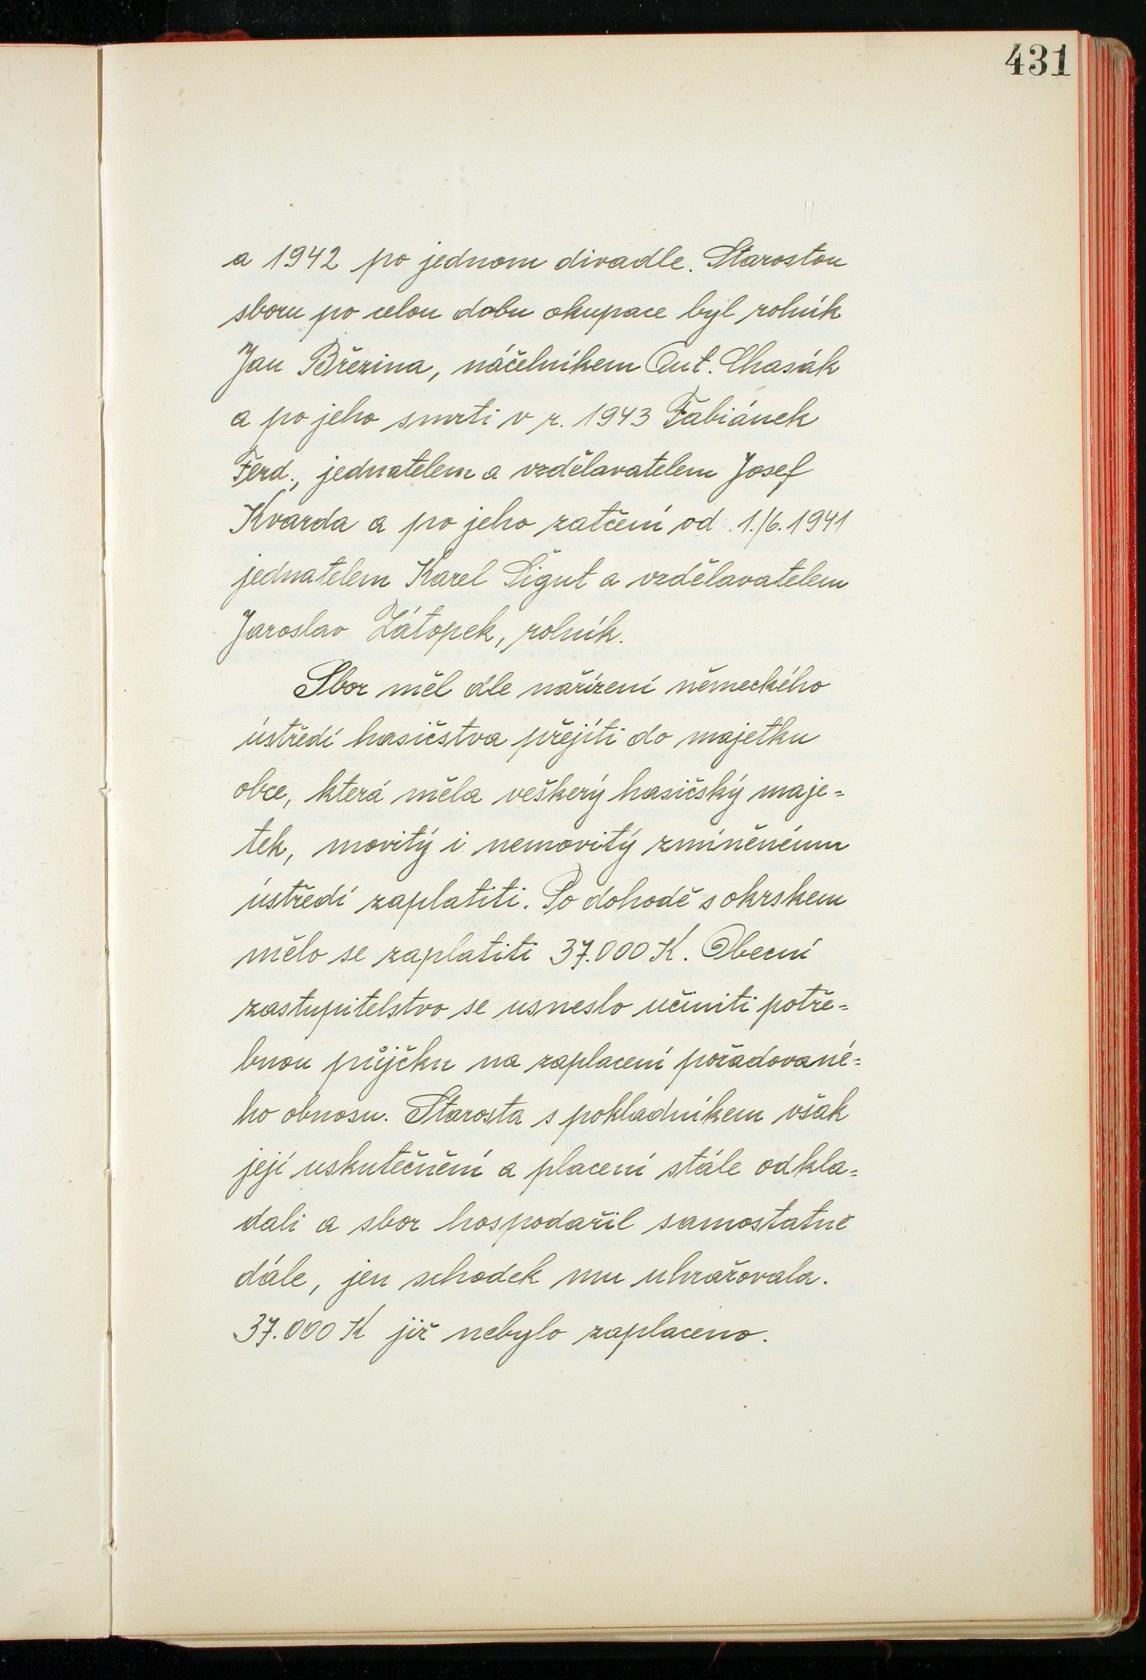 431
a 1942 po jednom divadle. Starostou
sboru po celou dobu okupace byl rolník
Jan Březina, náčelníkem Ant. Chasák
a po jeho smrti v r. 1943 Fabiánek
Ferd., jednatelem a vzdělavatelem Josef
Kvarda a po jeho zatčení od 1./6. 1941
jednatelem Karel Šigut a vzdělavatelem
Jaroslav Zátopek, rolník.
Sbor měl dle nařízení německého
ústředí hasičstva přejíti do majetku
obce, která měla veškerý hasičský maje=
tek, movitý i nemovitý zmíněnému
ústředí zaplatiti. Po dohodě s okrskem
mělo se zaplatiti 37.000 K. Obecní
zastupitelstvo se usneslo učiniti potře=
bnou půjčku na zaplacení požadované=
ho obnosu. Starosta s pokladníkem však
její uskutečnění a placení stále odkla=
dali a sbor hospodařil samostatně
dále, jen schodek mu uhražovala.
37.000 K již nebylo zaplaceno.